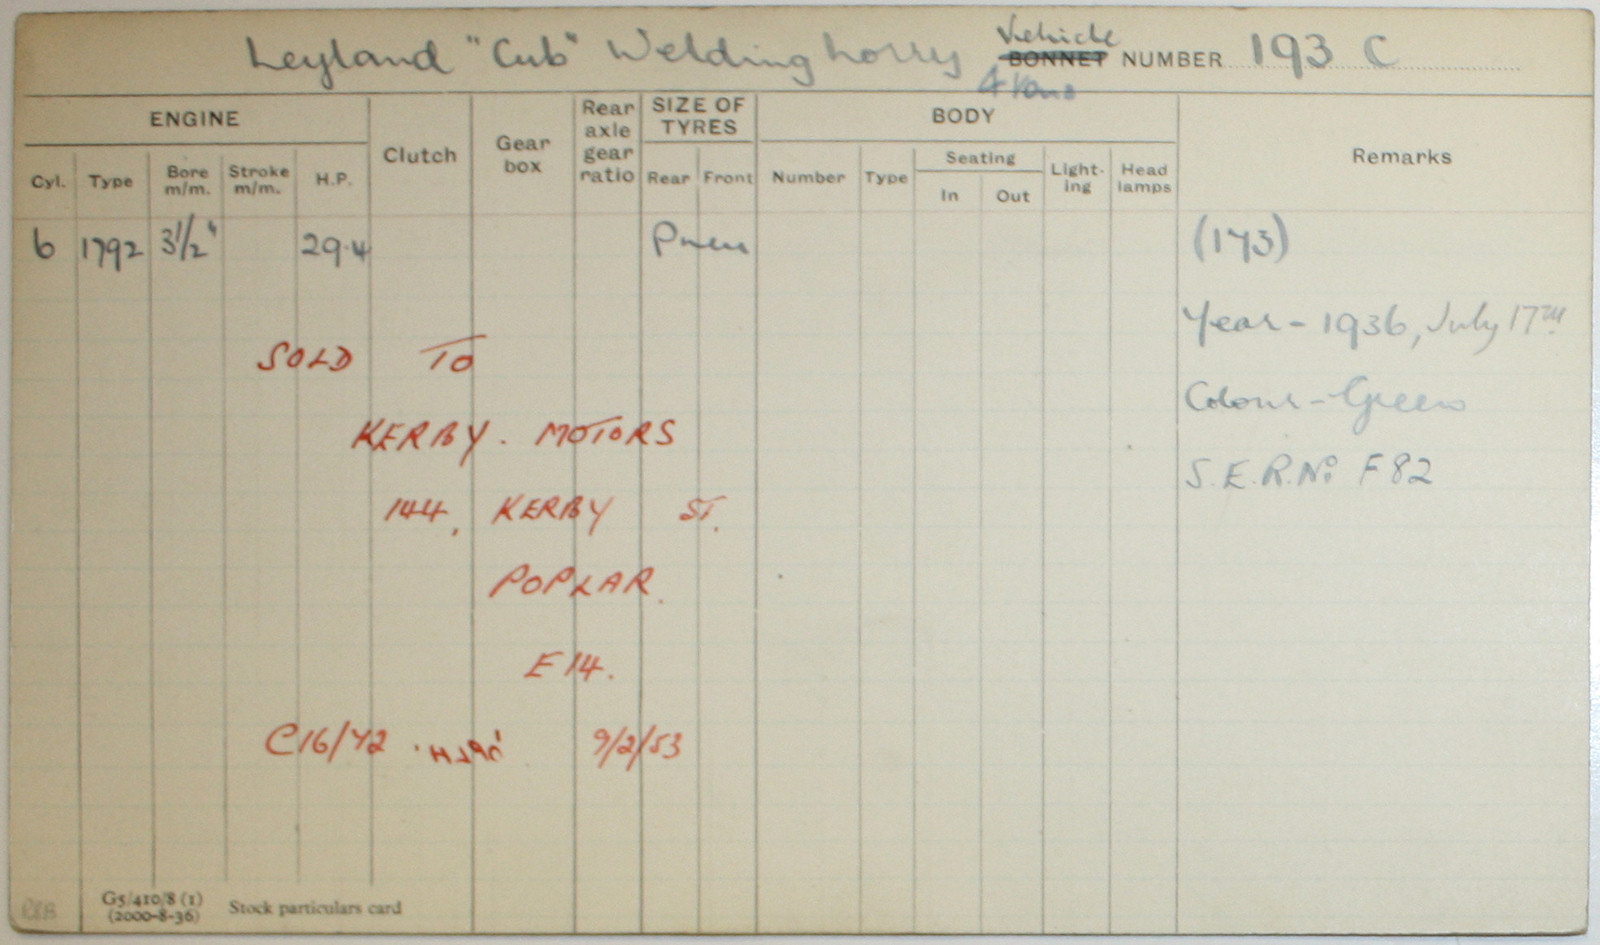 Leyland "Cub" Welding Lorry Vehicle BONNET NUMBER 193 C
4 Tons
ENGINE
Clutch
Gear box
Rear axle gear ratio
SIZE OF TYRES
BODY
Remarks
Cyl. Type Bore m/m. Stroke m/m. H.P.
Rear Front
Number Type Seating In Out Light-ing Head lamps
6 1792 3½" 29.4 Pneu (173)
Year - 1936, July 17TH
SOLD TO
Colour - Green
KERBY. MOTORS
S.E.R.No F82
144, KERBY ST.
POPLAR.
E14.
C16/42 9/2/53
G5/410/8 (1)
(2000-8-36) Stock particulars card